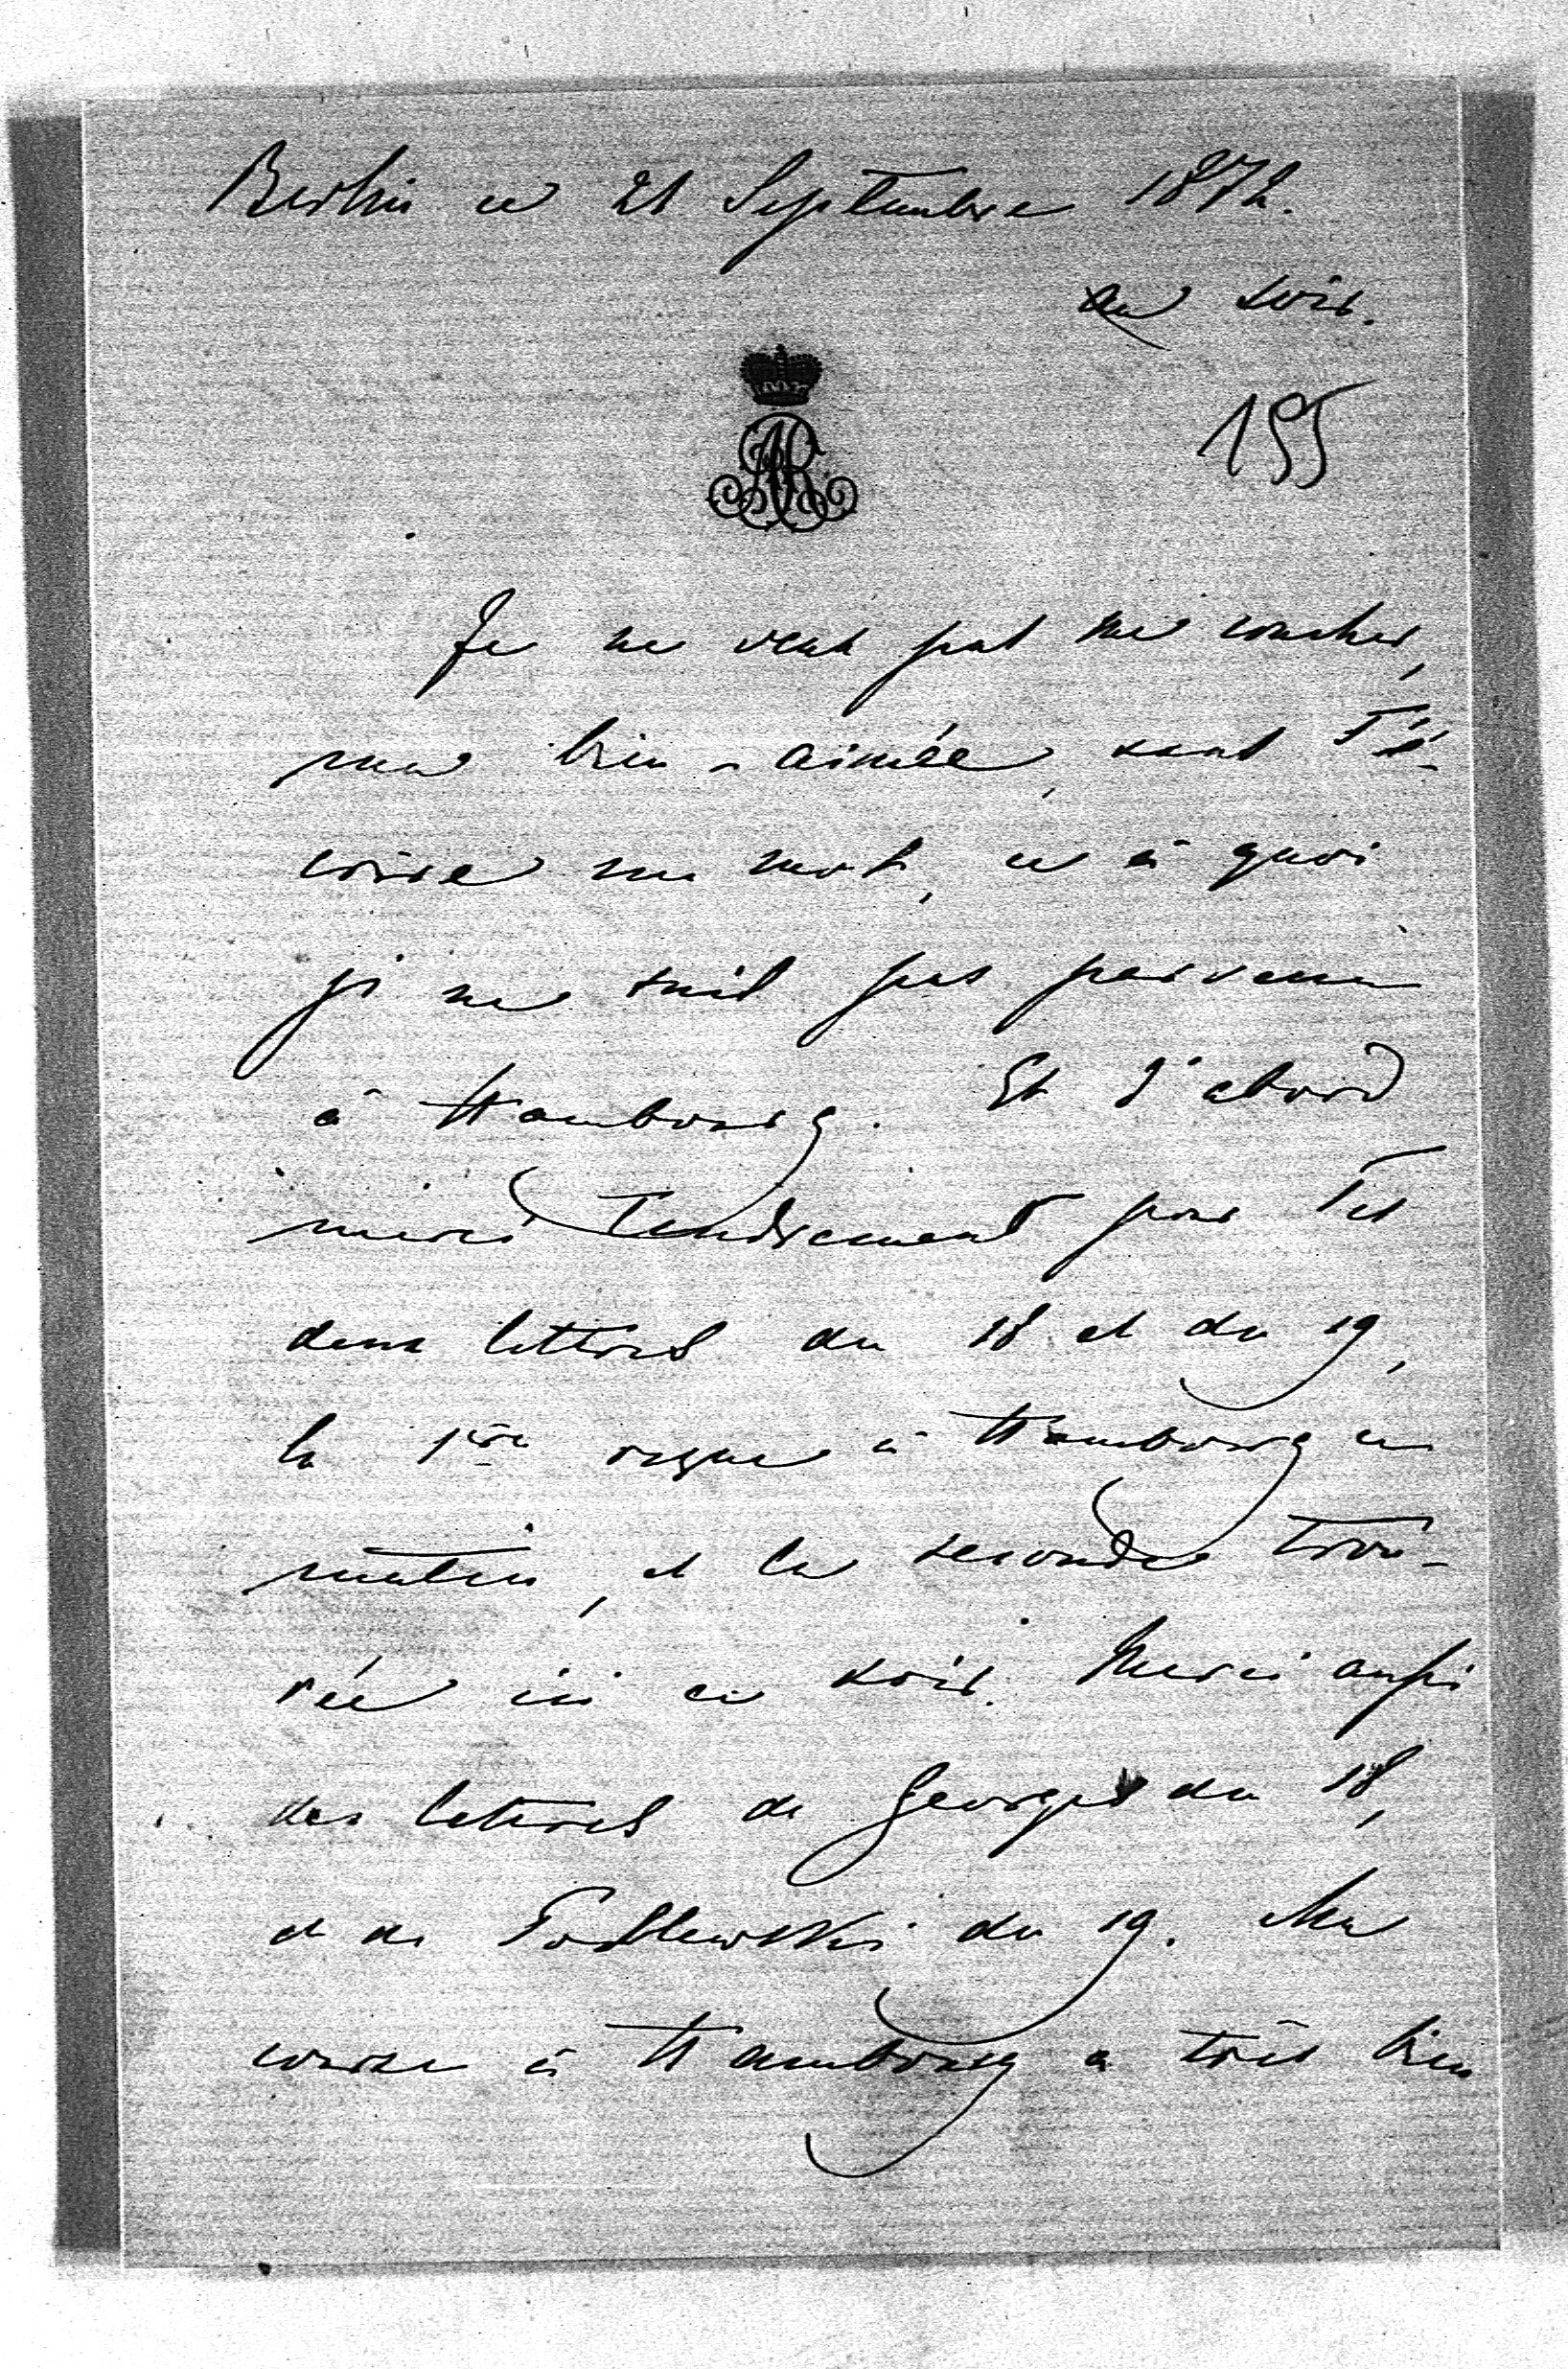 Berlin ce 21 Septembre 1872.
au soir.
AR
155
Je ne veux pas me coucher,
ma bien-aimée, sans T'é-
crire un mot, ce à quoi
je ne suis pas parvenu
à Hambourg. Et d'abord
merci tendrement pour Tes
deux lettres du 18 et du 19,
la 1ère reçue à Hambourg ce
matin, et la seconde trou-
vée ici ce soir. Merci aussi
des lettres de Georges du 18,
et de du 19. Ma
course à Hambourg a très bien